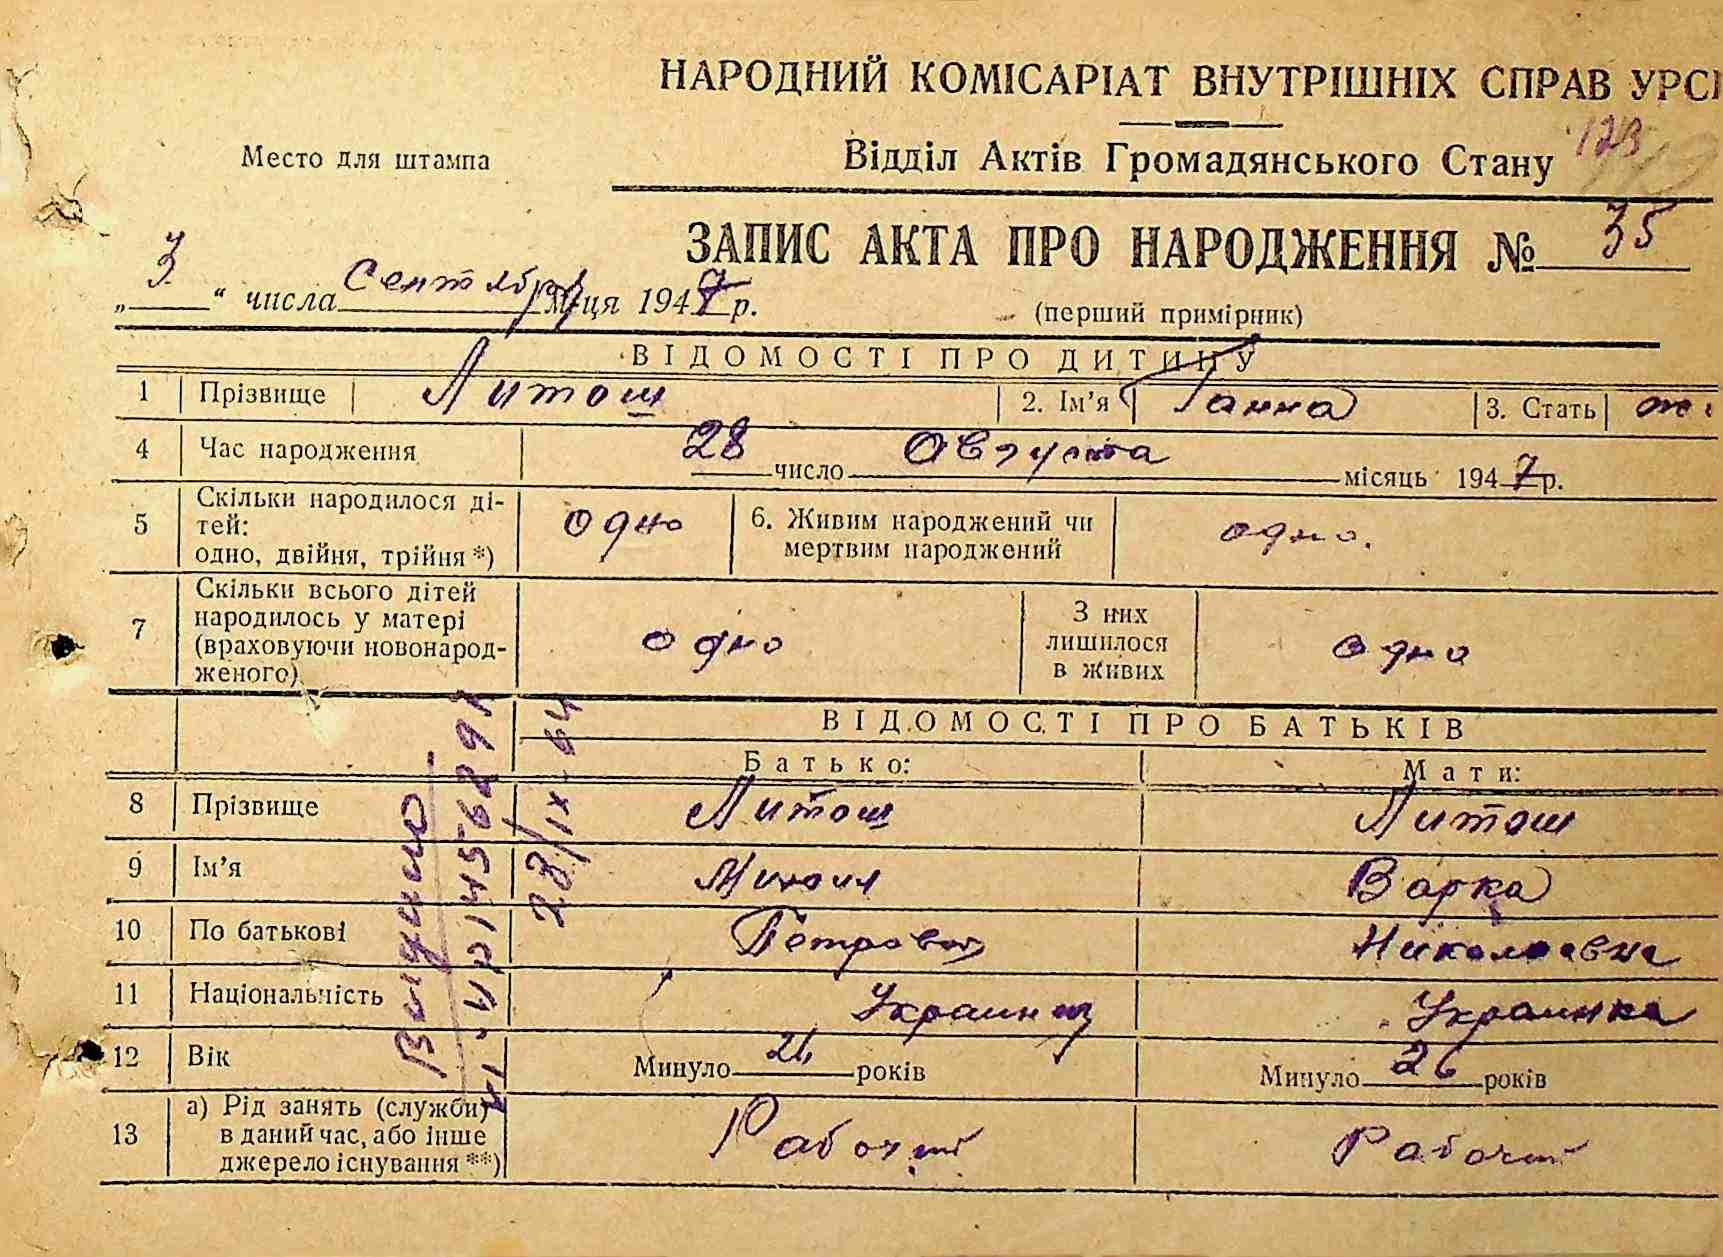 НАРОДНИЙ КОМІСАРІАТ ВНУТРІШНІХ СПРАВ УРС
Место для штампа
Відділ Актів Громадянського Стану
123
ЗАПИС АКТА ПРО НАРОДЖЕННЯ № 35
„3“ числа Сентября м-ця 1947 р.
(перший примірник)
ВІДОМОСТІ ПРО ДИТИНУ
1 Прізвище Литош 2. Ім'я Ганна 3. Стать ж
4 Час народження 28 число Августа місяць 1947 р.
5 Скільки народилося ді-
тей:
одно, двійня, трійня *) одно 6. Живим народжений чи
мертвим народжений одно.
7 Скільки всього дітей
народилось у матері
(враховуючи новонарод-
женого) одно З них
лишилося
в живих одно
ВІДОМОСТІ ПРО БАТЬКІВ
Батько: Мати:
8 Прізвище Литош Литош
9 Ім'я Михаил Варка
10 По батькові Петрович Николаевна
11 Національність Украинец Украинка
12 Вік Минуло років Минуло 26 років
13 а) Рід занять (служби)
в даний час, або інше
джерело існування **) Рабочий Рабочий
28/IX-64